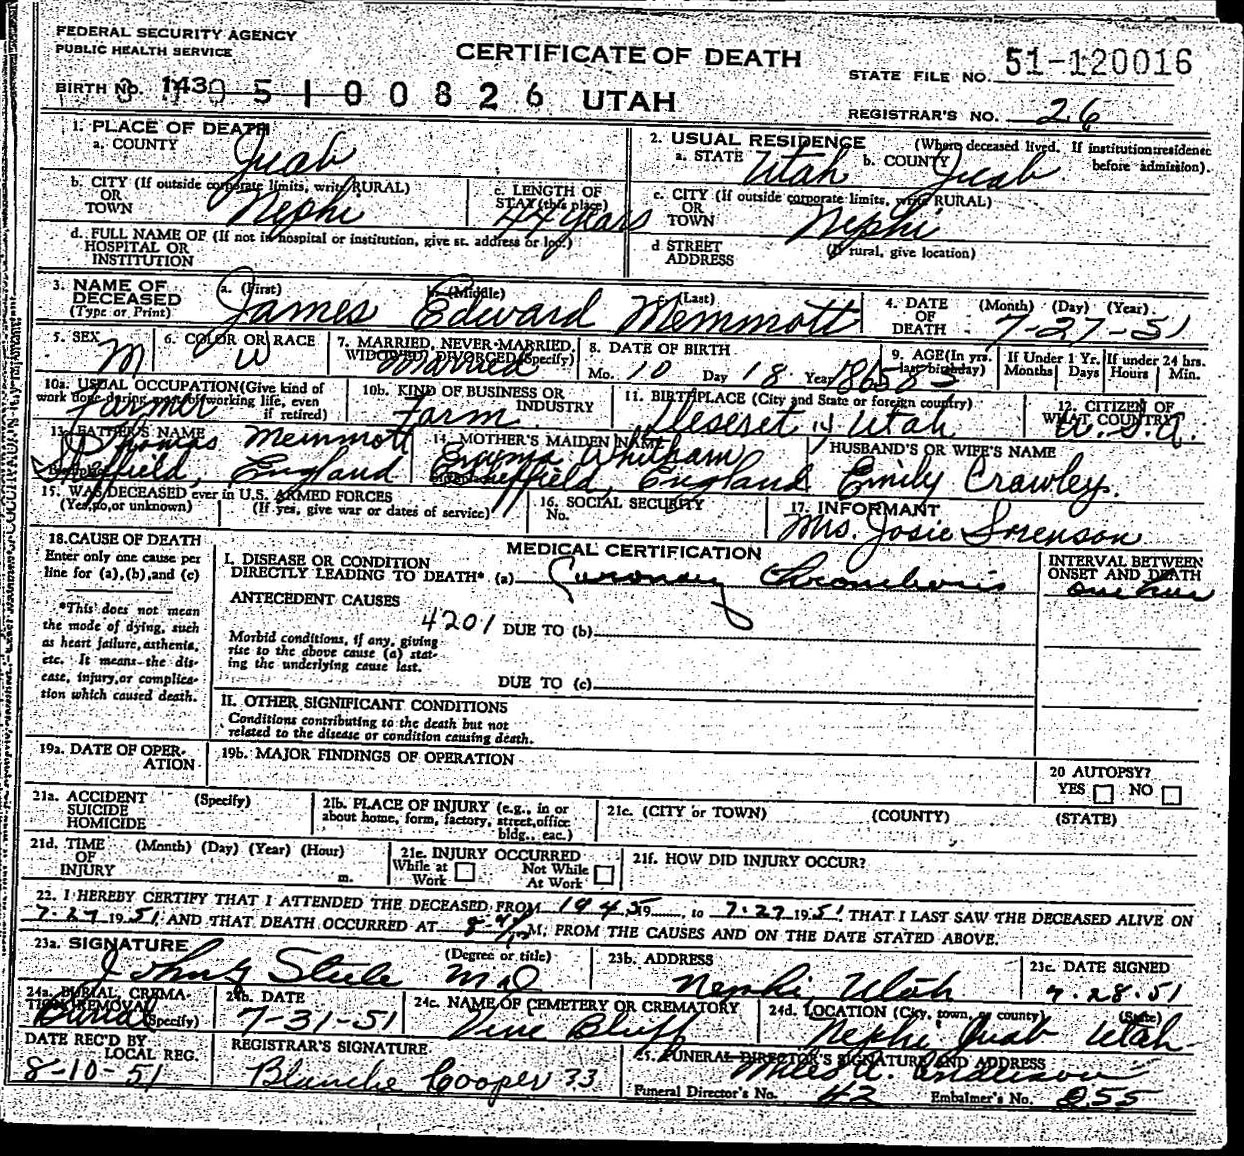 FEDERAL SECURITY AGENCY
PUBLIC HEALTH SERVICE
CERTIFICATE OF DEATH
STATE FILE NO. 51-120016
BIRTH NO. 143 5100826 UTAH
REGISTRAR'S NO. 26
1. PLACE OF DEATH
a. COUNTY Juab
2. USUAL RESIDENCE (Where deceased lived. If institution: residence before admission).
a. STATE Utah b. COUNTY Juab
b. CITY (If outside corporate limits, write RURAL) OR TOWN Nephi
c. LENGTH OF STAY (this place) 44 years
c. CITY (If outside corporate limits, write RURAL) OR TOWN Nephi
d. FULL NAME OF (If not in hospital or institution, give st. address or loc.) HOSPITAL OR INSTITUTION
d STREET ADDRESS (If rural, give location)
3. NAME OF DECEASED (Type or Print) a. (First) James b. (Middle) Edward c. (Last) Memmott
4. DATE OF DEATH (Month) (Day) (Year) 7-27-51
5. SEX M
6. COLOR OR RACE W
7. MARRIED, NEVER MARRIED, WIDOWED, DIVORCED (Specify) Married
8. DATE OF BIRTH Mo. 10 Day 18 Year 1865
9. AGE (In yrs. last birthday) 85
If Under 1 Yr. Months Days
If under 24 hrs. Hours Min.
10a. USUAL OCCUPATION (Give kind of work done during most of working life, even if retired) Farmer
10b. KIND OF BUSINESS OR INDUSTRY Farm
11. BIRTHPLACE (City and State or foreign country) Deseret Utah
12. CITIZEN OF WHAT COUNTRY? U.S.A.
13. FATHER'S NAME Thomas Memmott
Birthplace Sheffield, England
14. MOTHER'S MAIDEN NAME Emma Whitham
Birthplace Sheffield, England
HUSBAND'S OR WIFE'S NAME
Emily Crawley.
15. WAS DECEASED ever in U.S. ARMED FORCES
(Yes, no, or unknown) (If yes, give war or dates of service)
16. SOCIAL SECURITY No.
17. INFORMANT
Mrs. Josie Sorenson
18. CAUSE OF DEATH
Enter only one cause per line for (a), (b), and (c)
*This does not mean the mode of dying, such as heart failure, asthenia, etc. It means the disease, injury, or complication which caused death.
MEDICAL CERTIFICATION
I. DISEASE OR CONDITION DIRECTLY LEADING TO DEATH* (a) Coronary Thrombosis
INTERVAL BETWEEN ONSET AND DEATH
one hour
ANTECEDENT CAUSES
4201 DUE TO (b)
Morbid conditions, if any, giving rise to the above cause (a) stating the underlying cause last.
DUE TO (c)
II. OTHER SIGNIFICANT CONDITIONS
Conditions contributing to the death but not related to the disease or condition causing death.
19a. DATE OF OPERATION
19b. MAJOR FINDINGS OF OPERATION
20 AUTOPSY?
YES NO
21a. ACCIDENT SUICIDE HOMICIDE (Specify)
21b. PLACE OF INJURY (e.g., in or about home, form, factory, street, office bldg., eac.)
21c. (CITY or TOWN) (COUNTY) (STATE)
21d. TIME OF INJURY (Month) (Day) (Year) (Hour) m.
21e. INJURY OCCURRED
While at Work Not While At Work
21f. HOW DID INJURY OCCUR?
22. I HEREBY CERTIFY THAT I ATTENDED THE DECEASED FROM 1945 19 , to 7-27 1951 THAT I LAST SAW THE DECEASED ALIVE ON
7-27 1951 AND THAT DEATH OCCURRED AT M, FROM THE CAUSES AND ON THE DATE STATED ABOVE.
23a. SIGNATURE (Degree or title)
Steele MD
23b. ADDRESS
Nephi, Utah
23c. DATE SIGNED
7-28-51
24a. BURIAL, CREMATION, REMOVAL (Specify) Burial
24b. DATE
7-31-51
24c. NAME OF CEMETERY OR CREMATORY
Vine Bluff
24d. LOCATION (City, town, or county) (State)
Nephi Juab Utah
DATE REC'D BY LOCAL REG.
8-10-51
REGISTRAR'S SIGNATURE
Blanche Cooper 33
25. FUNERAL DIRECTOR'S SIGNATURE AND ADDRESS
Miles A. Anderson
Funeral Director's No. 42 Embalmer's No. 255